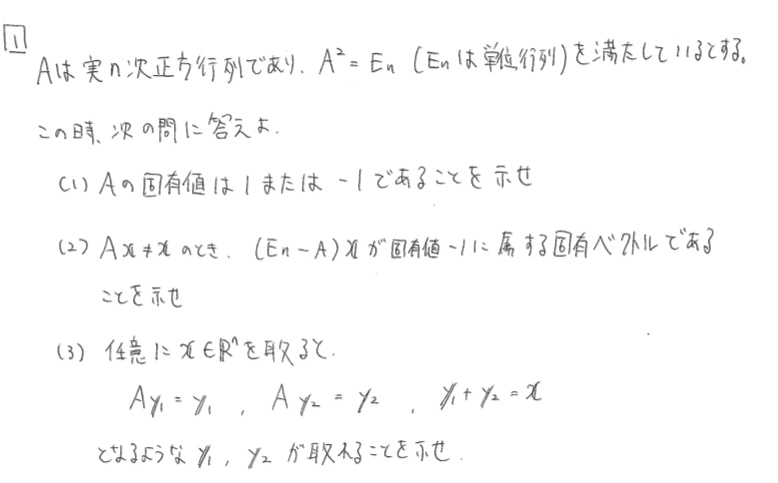 1
Aは実n次正方行列であり、A² = Eₙ (Eₙは単位行列)を満たしているとする。
この時、次の問に答えよ.
(1) Aの固有値は1または-1であることを示せ
(2) Ax≠xのとき、(Eₙ-A)xが固有値-1に属する固有ベクトルである
ことを示せ
(3) 任意にx∈ℝⁿを取ると、
Ay₁ = y₁ , Ay₂ = y₂ , y₁+y₂ = x
となるようなy₁, y₂が取れることを示せ.